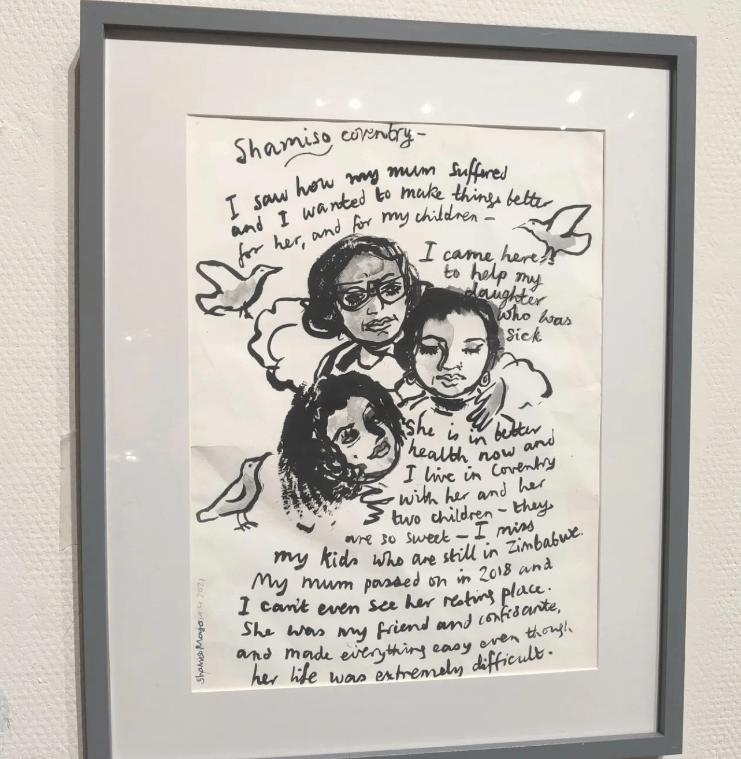 Shamiso coventry –
I saw how my mum suffered
and I wanted to make things better
for her, and for my children –
I came here
to help my
daughter
who was
sick
She is in better
health now and
I live in Coventry
with her and her
two children – they
are so sweet – I miss
my kids who are still in Zimbabwe.
My mum passed on in 2018 and
I can't even see her resting place.
She was my friend and confidante,
and made everything easy even though
her life was extremely difficult.
2021